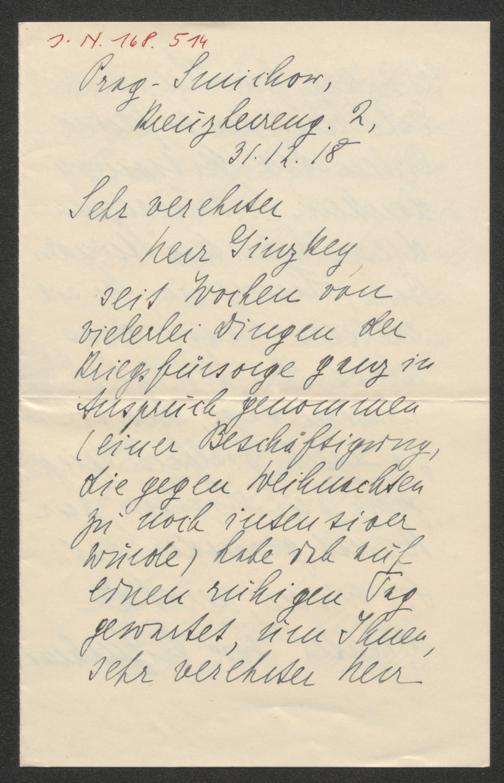 J. N. 168.514
Prag-Smichow,
Kreuzherreng. 2,
31.12.18
Sehr verehrter
Herr Ginzkey,
seit Wochen von
vielerlei Dingen der
Kriegsfürsorge ganz in
Anspruch genommen
(einer Beschäftigung,
die gegen Weihnachten
zu noch intensiver
würde) habe ich auf
einen ruhigen Tag
gewartet, um Ihnen,
sehr verehrter Herr